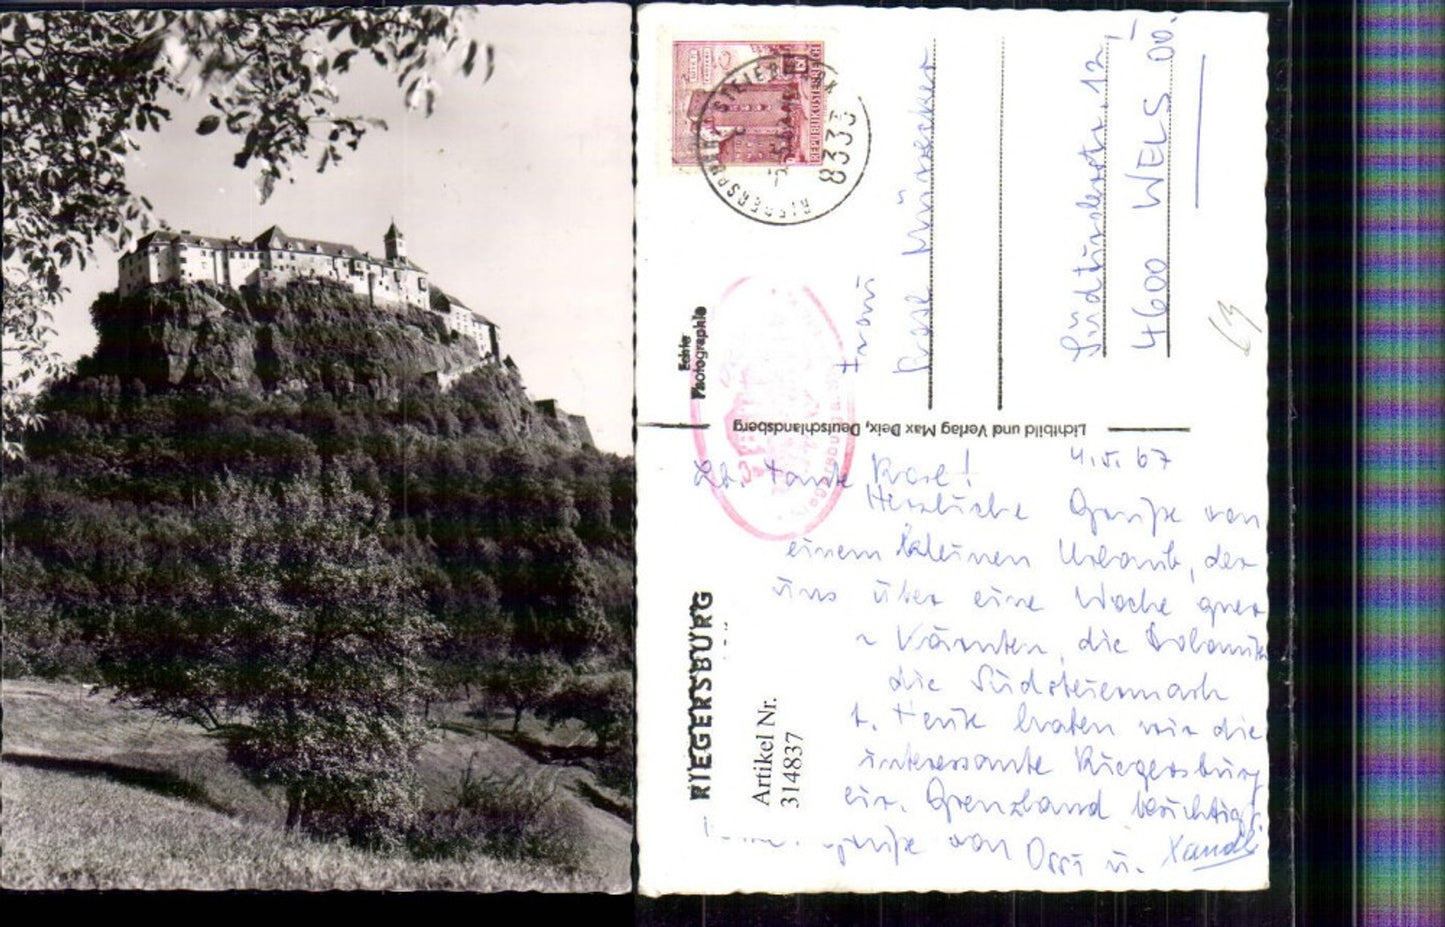 REPUBLIK ÖSTERREICH
8333
Echte
Photographie
Lichtbild und Verlag Max Deix, Deutschlandsberg
Frau
Rosl
Südtirolerstr. 12,
4600 WELS OÖ.
RIEGERSBURG
Artikel Nr.
314837
4.5. 67
Lb. Tante Rosl!
Herzliche Grüße von
einem kleinen Urlaub, der
uns über eine Woche quer
Kärnten, die
die Südsteiermark
Heute wir die
interessante Riegersburg
Grenzland besichtigt.
Grüße von Ossi u. Xandl